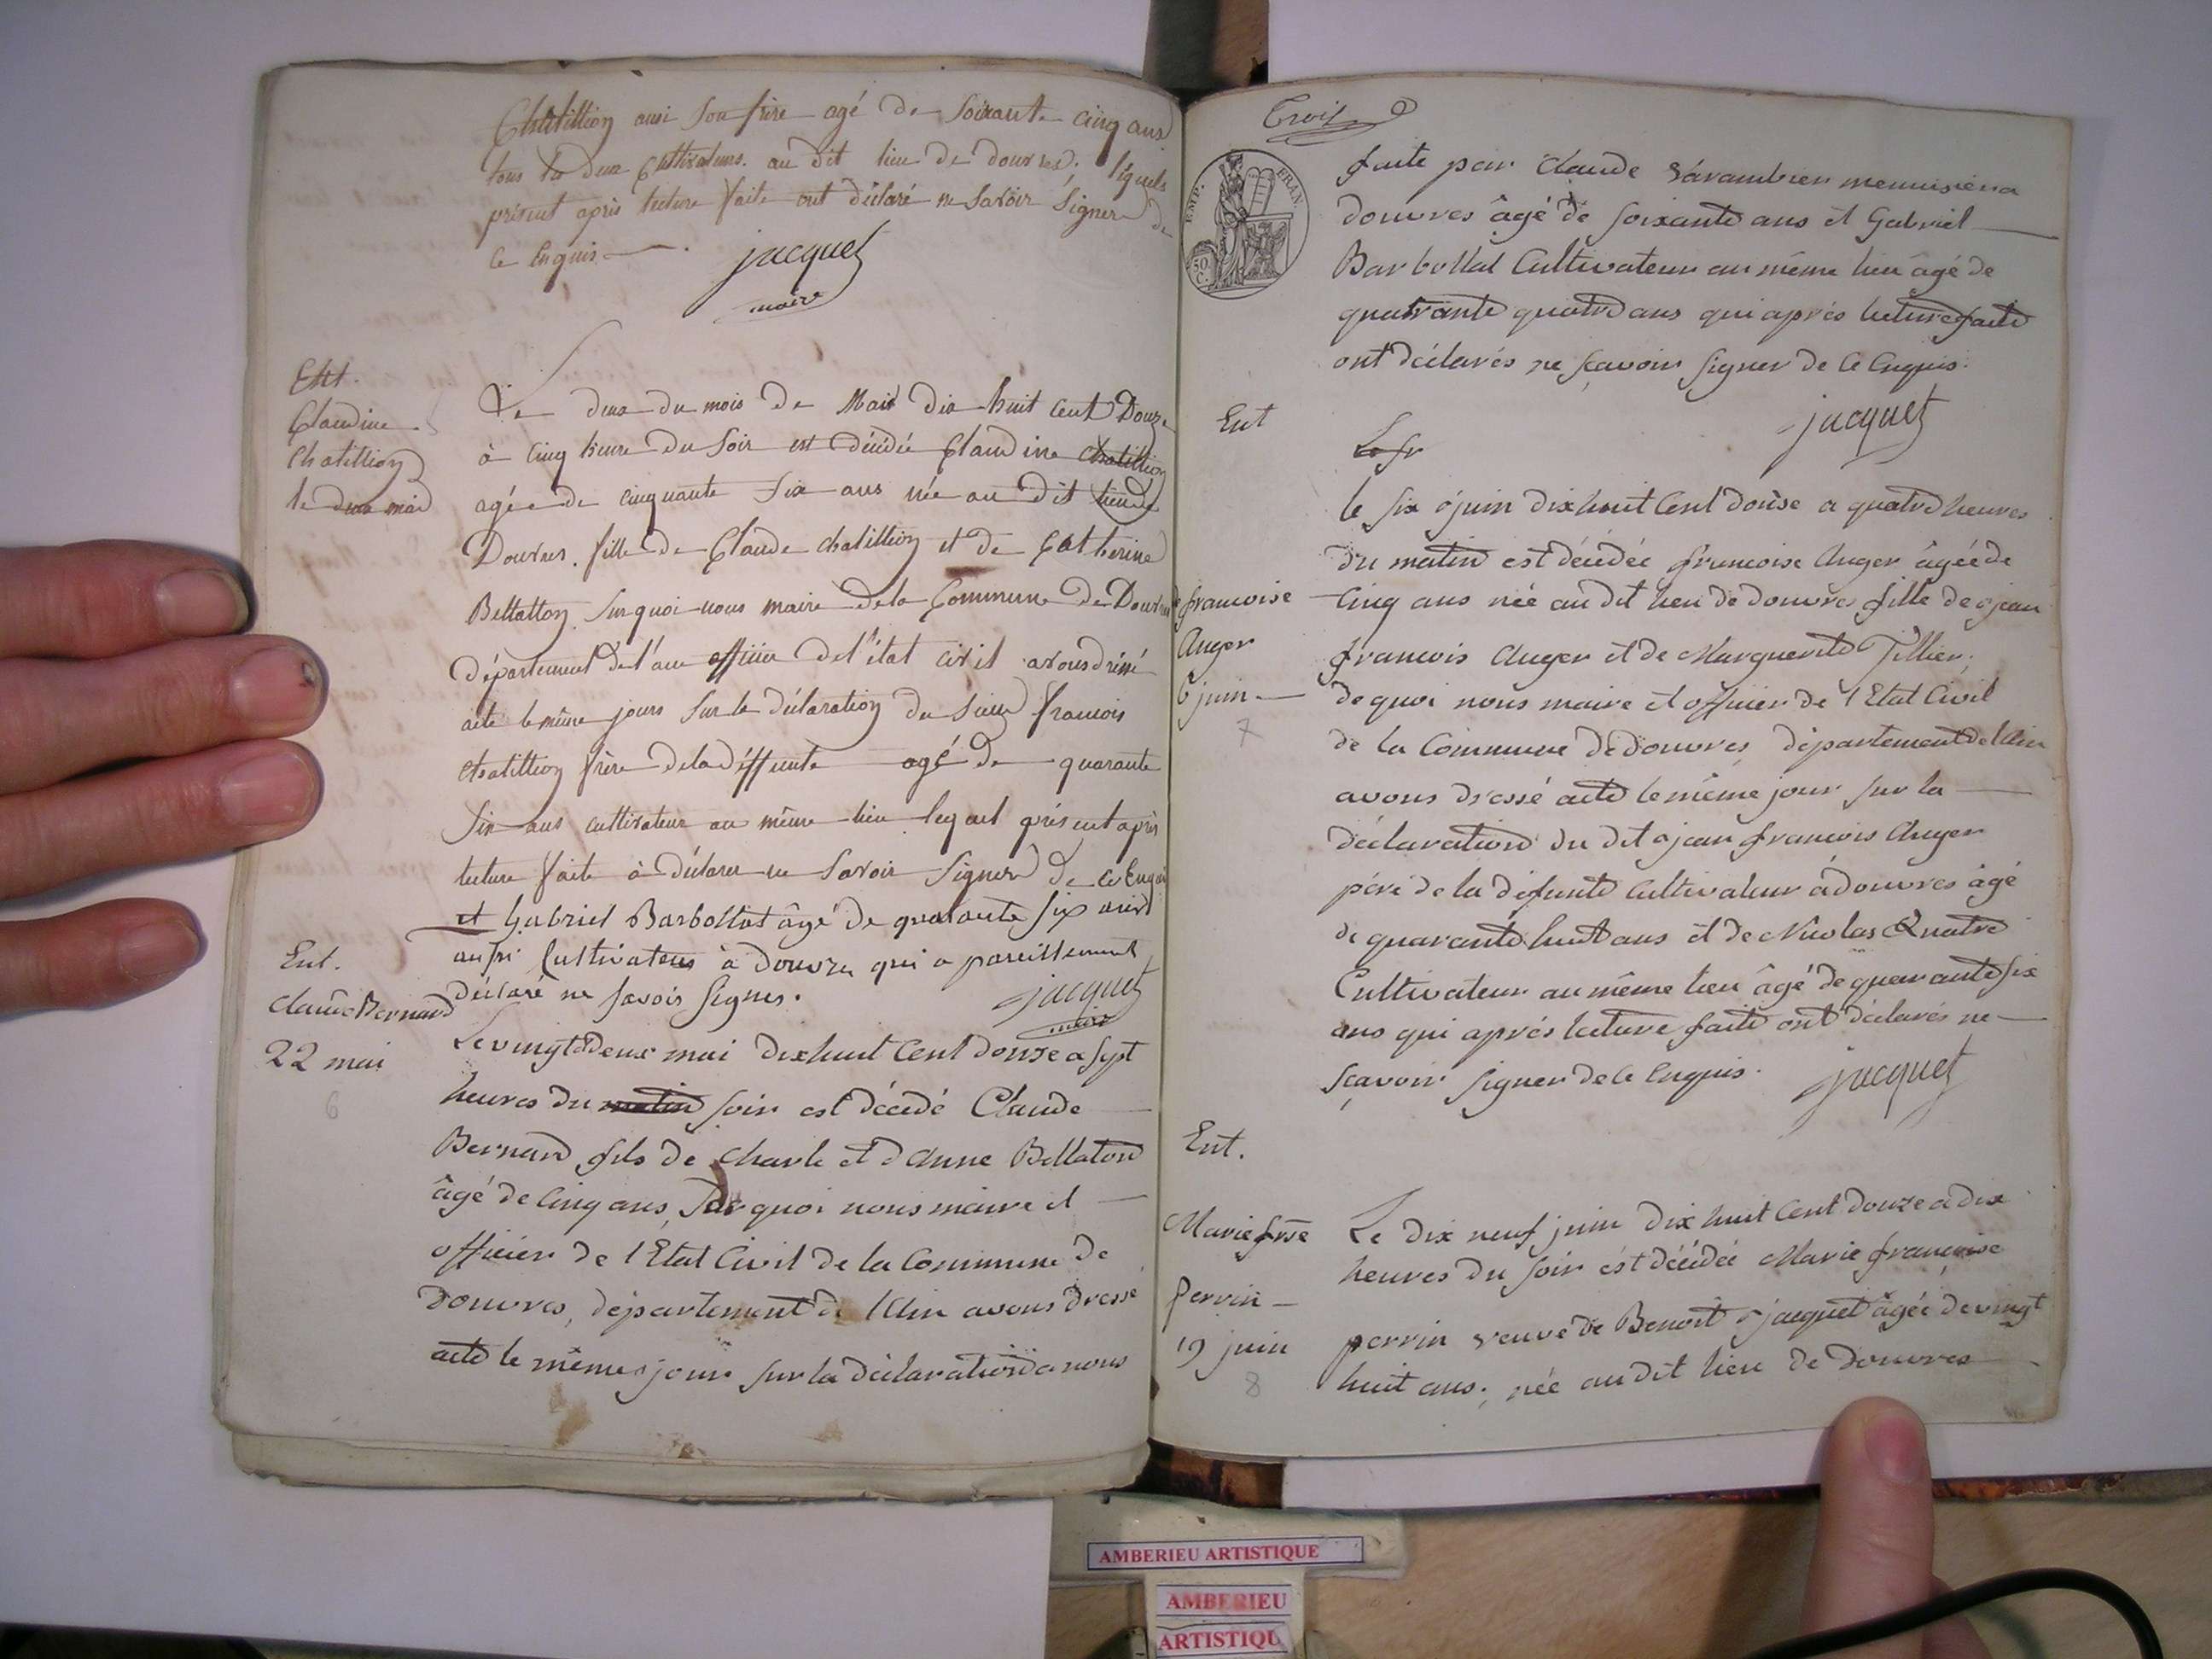 Chatillion ausi son frère agé de soixante cinq ans
tous les deux cultivateurs au dit lieu de douvres. lequels
présent après lecture faite ont déclaré ne savoir signer de
ce enquis
jacquet
maire
Ent.
Claudine
Chatillion
le deux mai
Le deux du mois de Mai dix huit cent Douze
à cinq heure du soir est décédée Claudine Chatillion
agée de cinquante six ans née au dit lieu de
Douvres. fille de Claude chatillion et de Catherine
Bellatton. sur quoi nous maire de la Commune de Douvres
département de l'ain officier de l'état civil avons dréssé
acte le même jours sur la déclaration du sieur francois
chatillion frère de la déffunte agé de quarante
six ans cultivateur au même lieu lequel présent après
lecture faite à déclaré ne savoir signer de ce Enquis
et Gabriel Barbollat âgé de quarante six ans
aussi Cultivateur à douvres qui a pareillement
déclaré ne savoir signer.
jacquet
maire
Ent.
Claude Bernard
22 mai
6
Le vingt deux mai dix huit cent douze a sept
heures du matin soir est décédé Claude
Bernard fils de Charle et d'Anne Bellaton
âgé de cinq ans, sur quoi nous maire et
officier de l'Etat Civil de la Commune de
douvres, département de l'Ain avons dressé
acte le même jour sur la déclaration a nous
Trois
EMP. FRAN.
50 C.
faite par Claude Savarambien menuisier a
douvres âgé de soixante ans et Gabriel
Barbollat Cultivateur au même lieu âgé de
quatrante quatre ans qui après lecture faite
ont déclarés ne sçavoir signer de ce enquis.
jacquet
Ent
Le fr
francoise
Auger
6 juin
7
le six juin dix huit Cent douse a quatre heures
du matin est décédée francoise Auger âgée de
Cinq ans née au dit lieu de douvres fille de jean
francois Auger et de Marguerite Tillier,
de quoi nous maire et officier de l'Etat Civil
de la Commune de douvres, département de l'Ain
avons dressé acte le même jour sur la
déclaration du dit jean francois Auger
péré de la défunte Cultivateur à douvres âgé
de quarante huit ans et de Nicolas Quatre
Cultivateur au même lieu âgé de quarante six
ans qui après lecture faite ont déclarés ne
sçavoir signer de ce enquis.
jacquet
Ent.
Marie frse
perrin
19 juin
8
Le dix neuf juin dix huit Cent douze a dix
heures du soir est décédée Marie françoise
perrin veuve de Benoît jacquet âgée de vingt
huit ans, née au dit lieu de Douvres
AMBERIEU ARTISTIQUE
AMBERIEU
ARTISTIQU